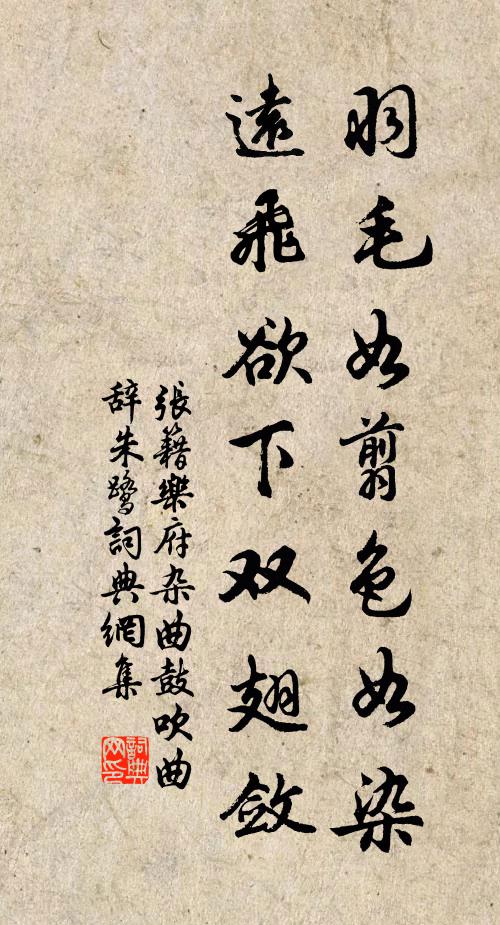 羽毛如翦色如染
遠飛欲下双翅斂
張籍樂府杂曲鼓吹曲
辞朱鷺詞典網集
詞典网印